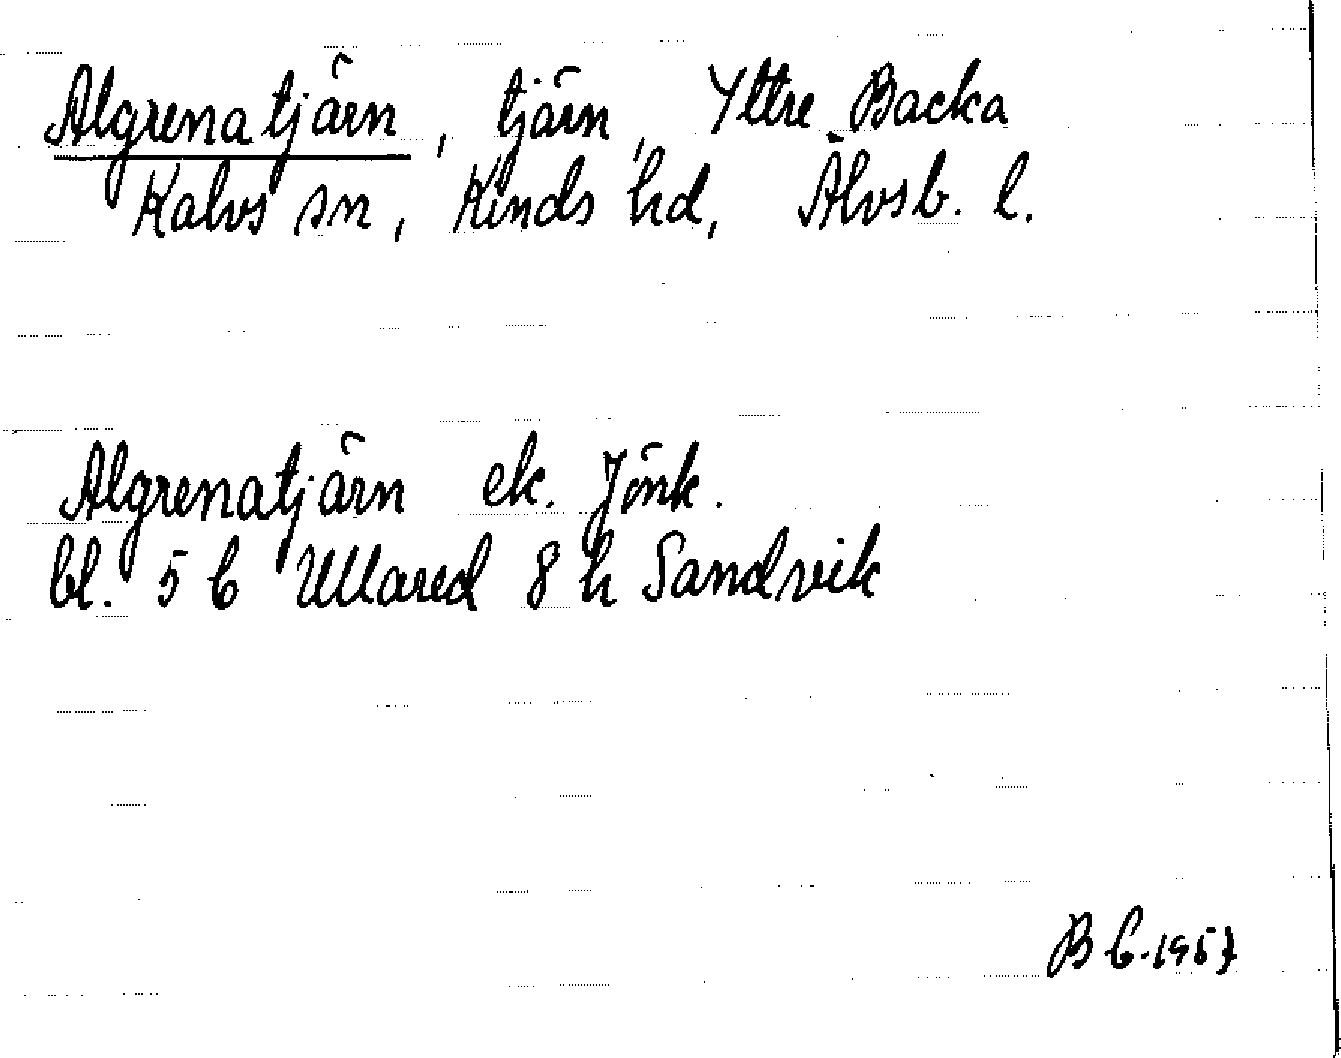 Algrenatjärn, tjärn, Yttre Backa
Kalvs sn, Kinds hd, Älvsb. l.
Algrenatjärn ek. Jönk.
bl. 5 b Ullared 8 h Sandvik
B C. 1957